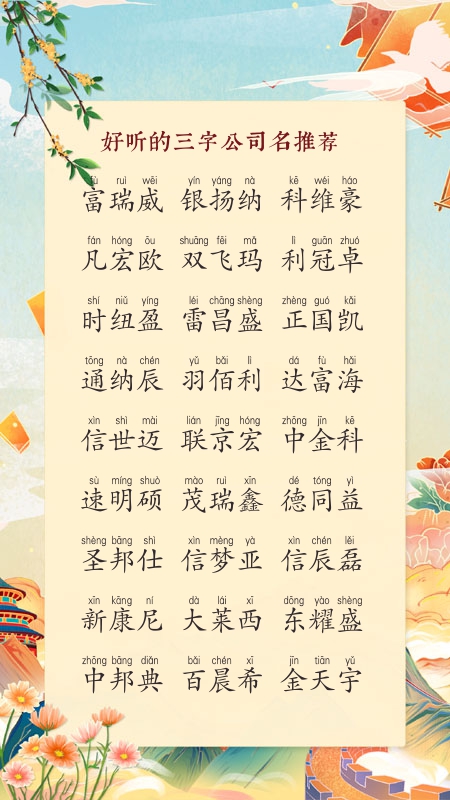 好听的三字公司名推荐
fù ruì wēi yín yáng nà kē wéi háo
富瑞威 银扬纳 科维豪
fán hóng ōu shuāng fēi mǎ lì guān zhuó
凡宏欧 双飞玛 利冠卓
shí niǔ yíng léi chāng shèng zhèng guó kǎi
时纽盈 雷昌盛 正国凯
tōng nà chén yǔ bǎi lì dá fù hǎi
通纳辰 羽佰利 达富海
xìn shì mài lián jīng hóng zhōng jīn kē
信世迈 联京宏 中金科
sù míng shuò mào ruì xīn dé tóng yì
速明硕 茂瑞鑫 德同益
shèng bāng shì xìn mèng yà xìn chén lěi
圣邦仕 信梦亚 信辰磊
xīn kāng ní dà lái xī dōng yào shèng
新康尼 大莱西 东耀盛
zhōng bāng diǎn bǎi chén xī jīn tiān yǔ
中邦典 百晨希 金天宇